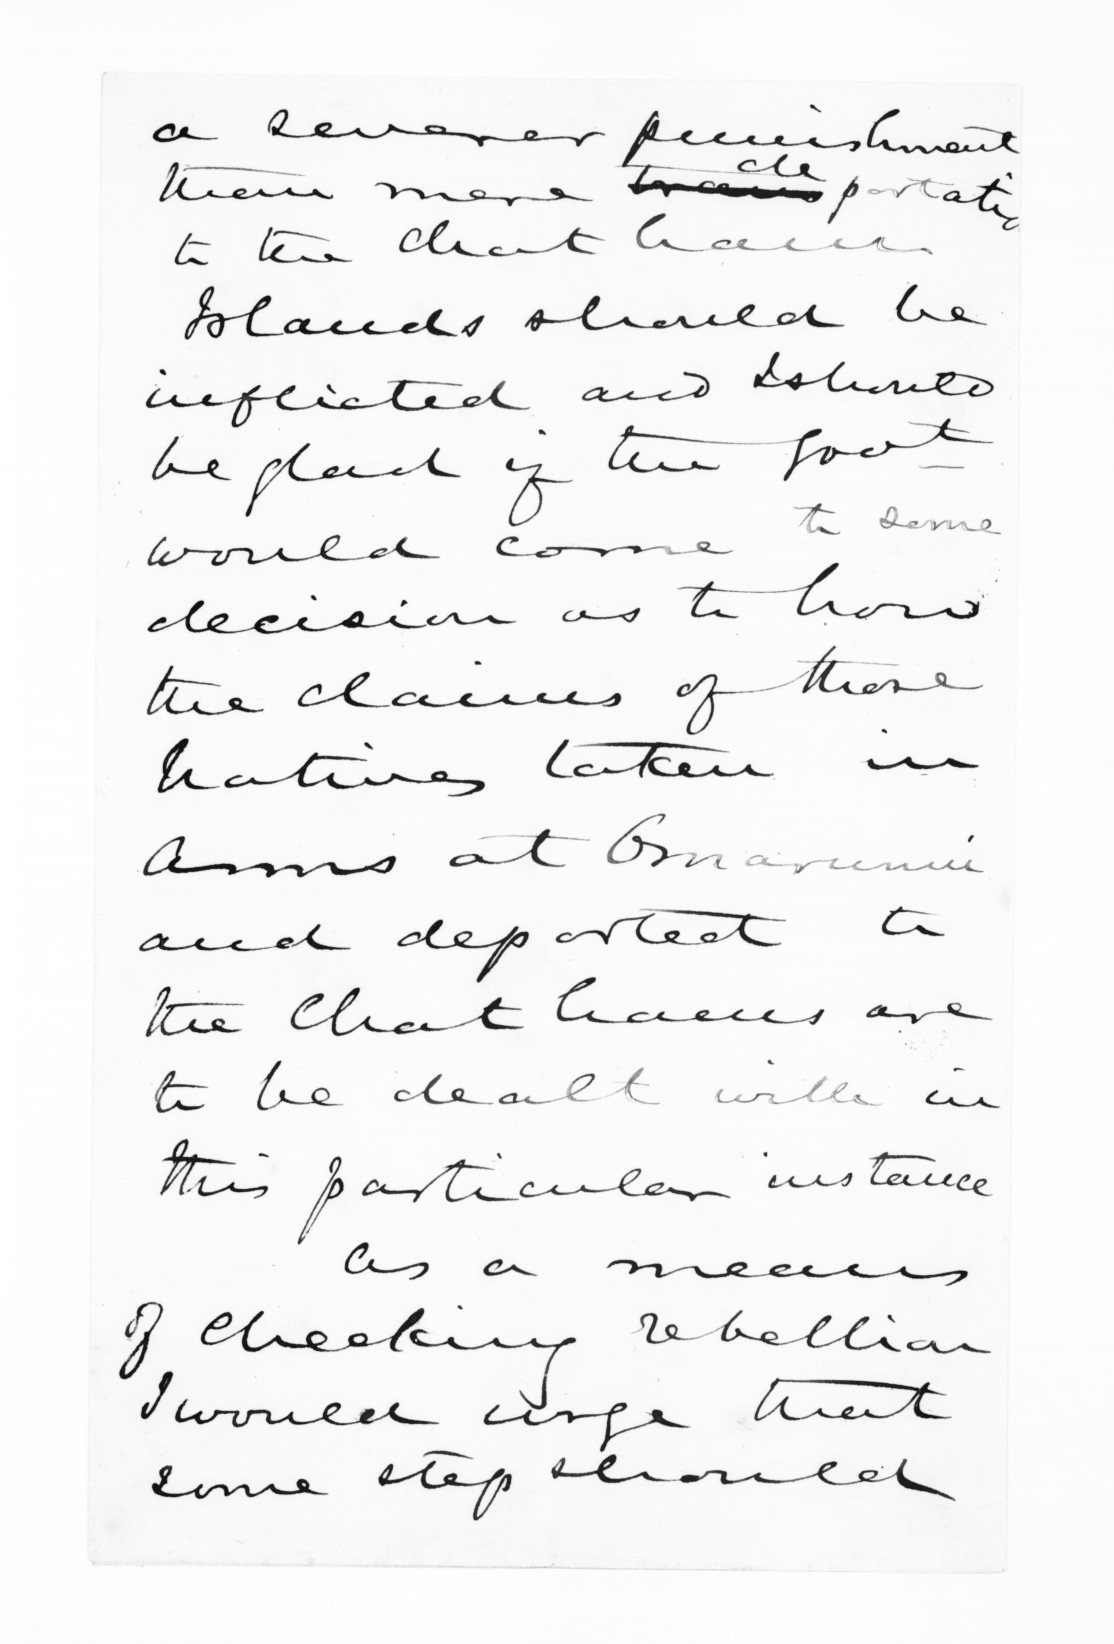 a severer punishment
than mere ~~trans~~ deportatio
to the Chatham
Islands should be
inflicted and I should
be glad if the Govt
would come to some
decision as to how
the claims of those
Natives taken in
Arms at Omarunui
and deported to
the Chathams are
to be dealt with in
this particular instance
as a means
of checking rebellion
I would urge that
some step should